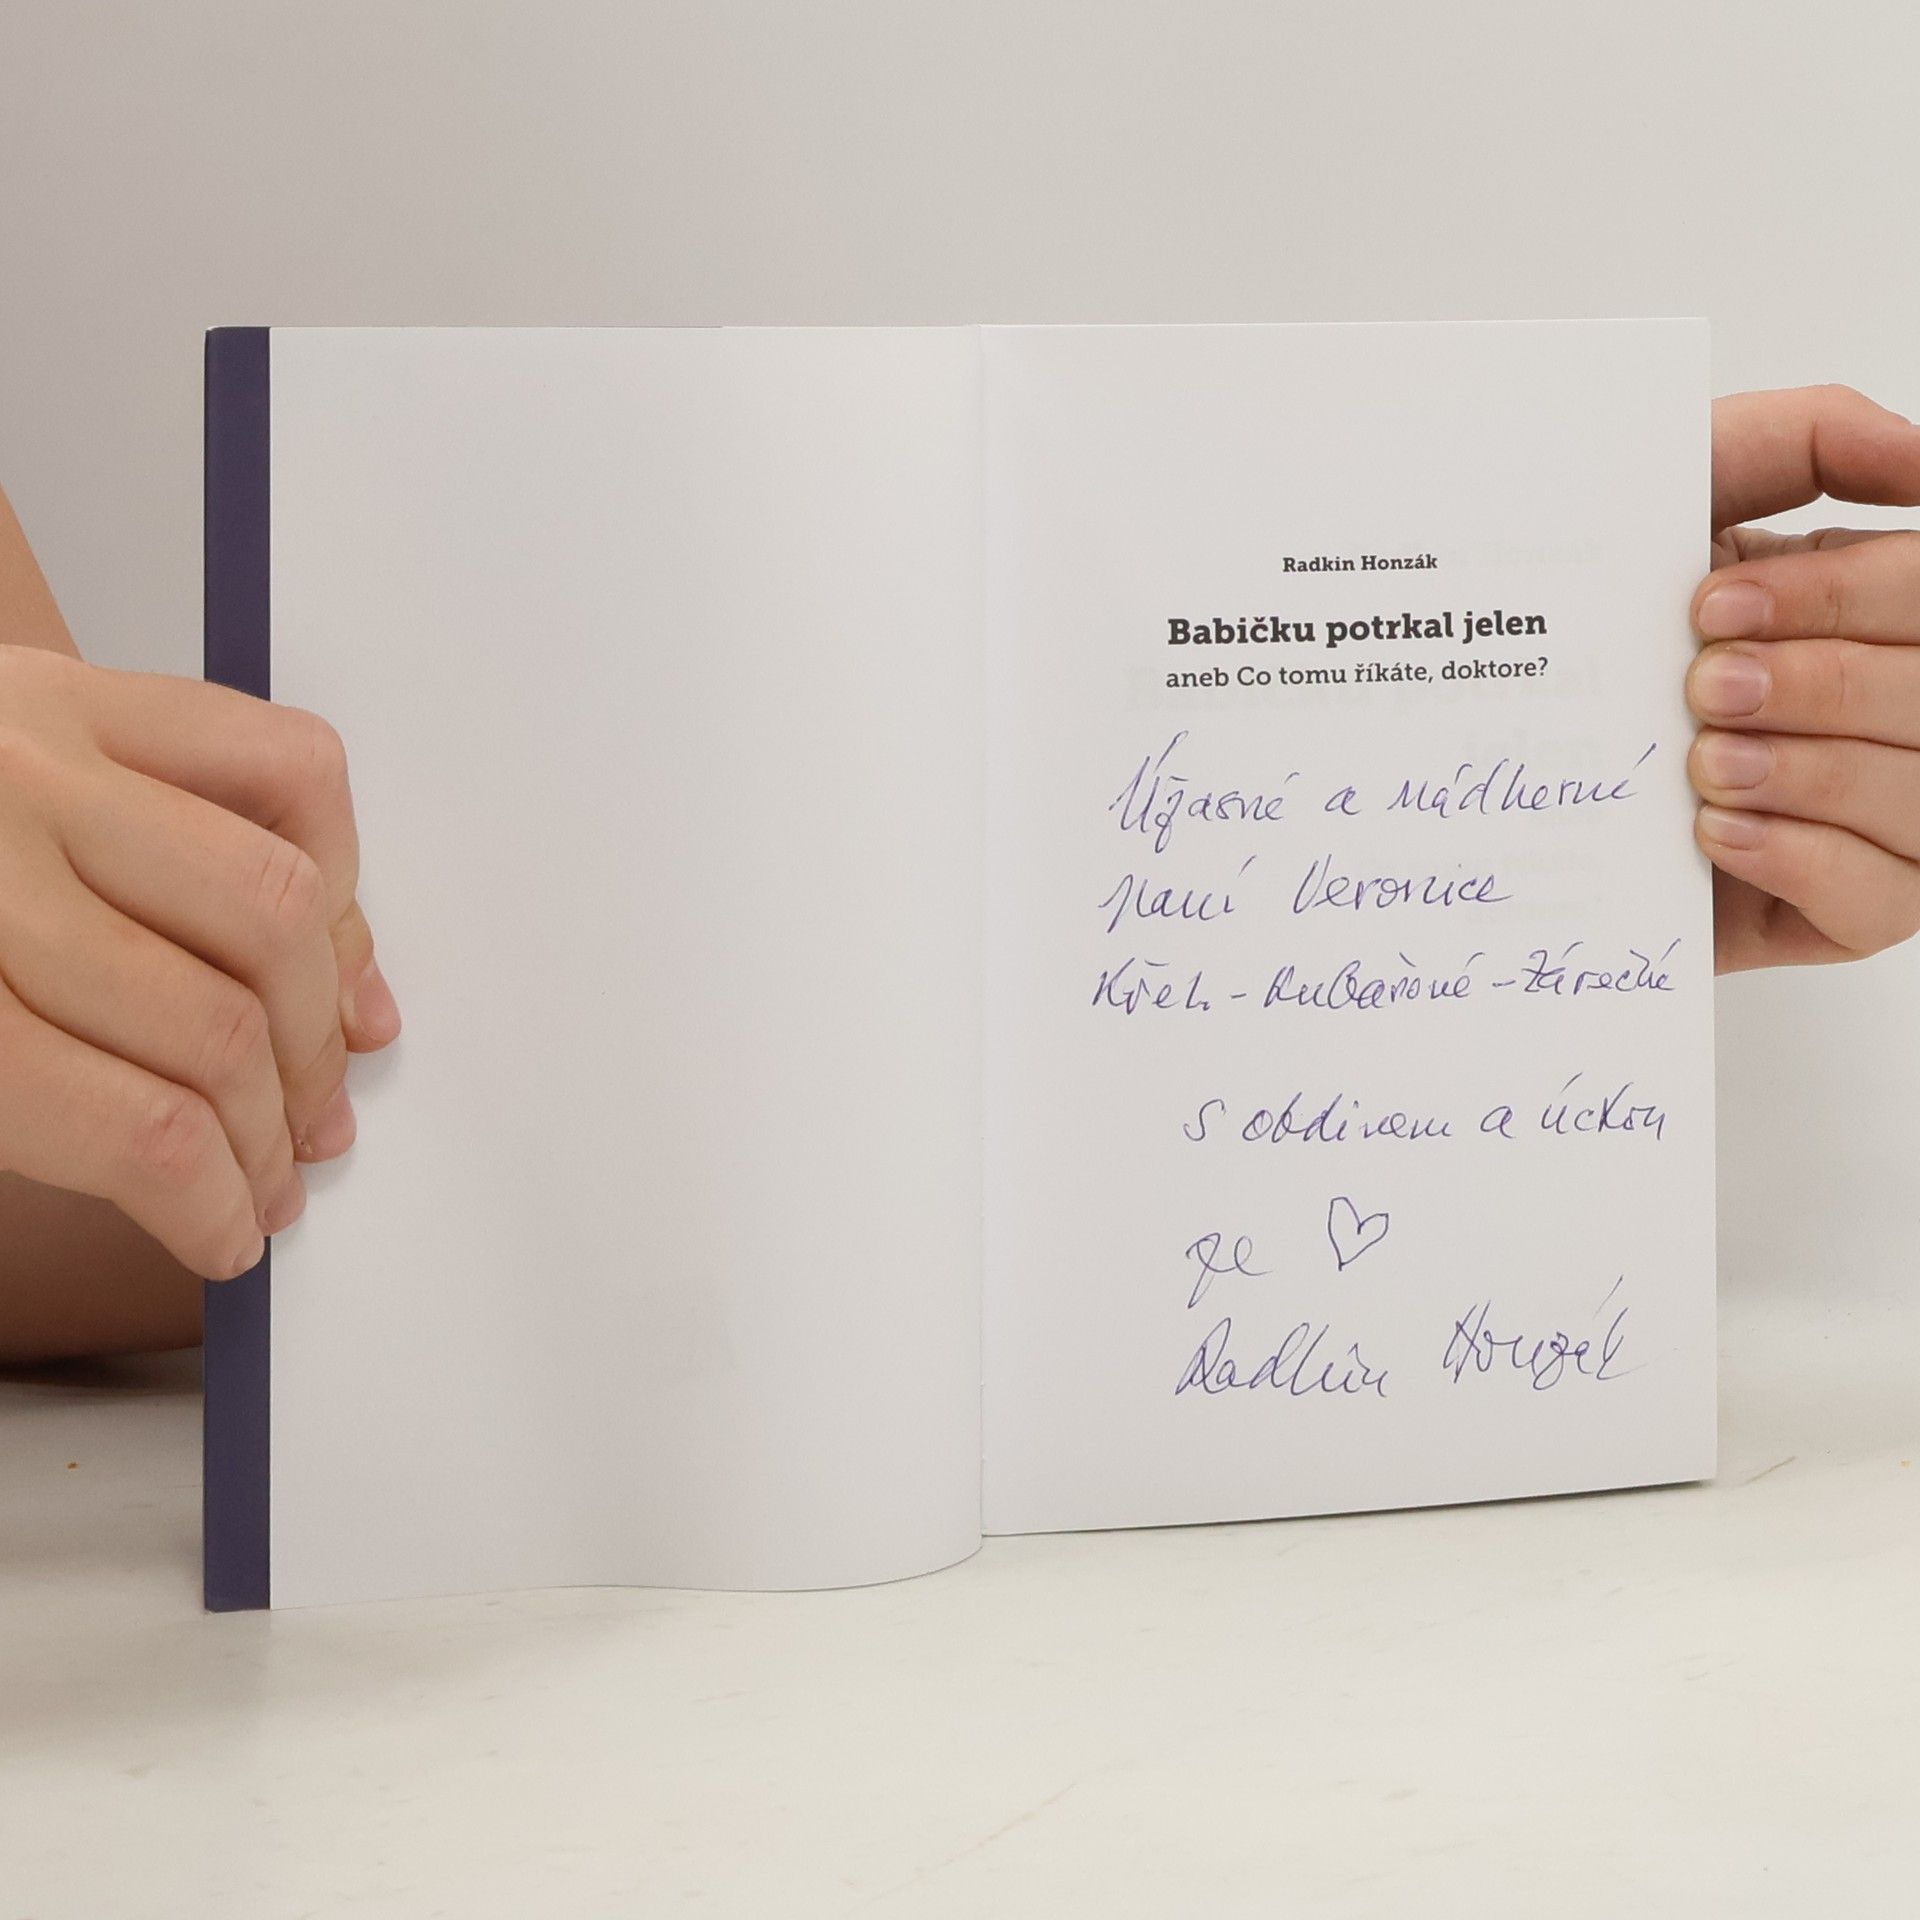 Radkin Honzák
Babičku potrkal jelen
aneb Co tomu říkáte, doktore?
Úžasné a nádherné
paní Veronice
Křeh-Kubařové-Zárečné
s obdivem a úctou
ze ♡
Radkin Honzák